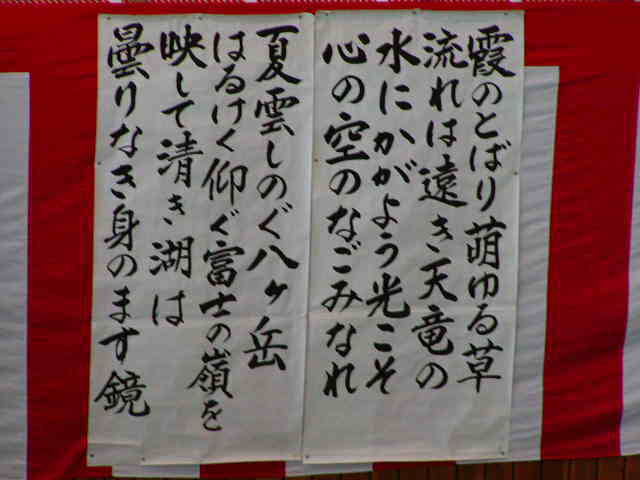 霞のとばり萌ゆる草
流れは遠き天竜の
水にかがよう光こそ
心の空のなごみなれ
夏雲しのぐ八ヶ岳
はるけく仰ぐ富士の嶺を
映して清き湖は
曇りなき身のます鏡